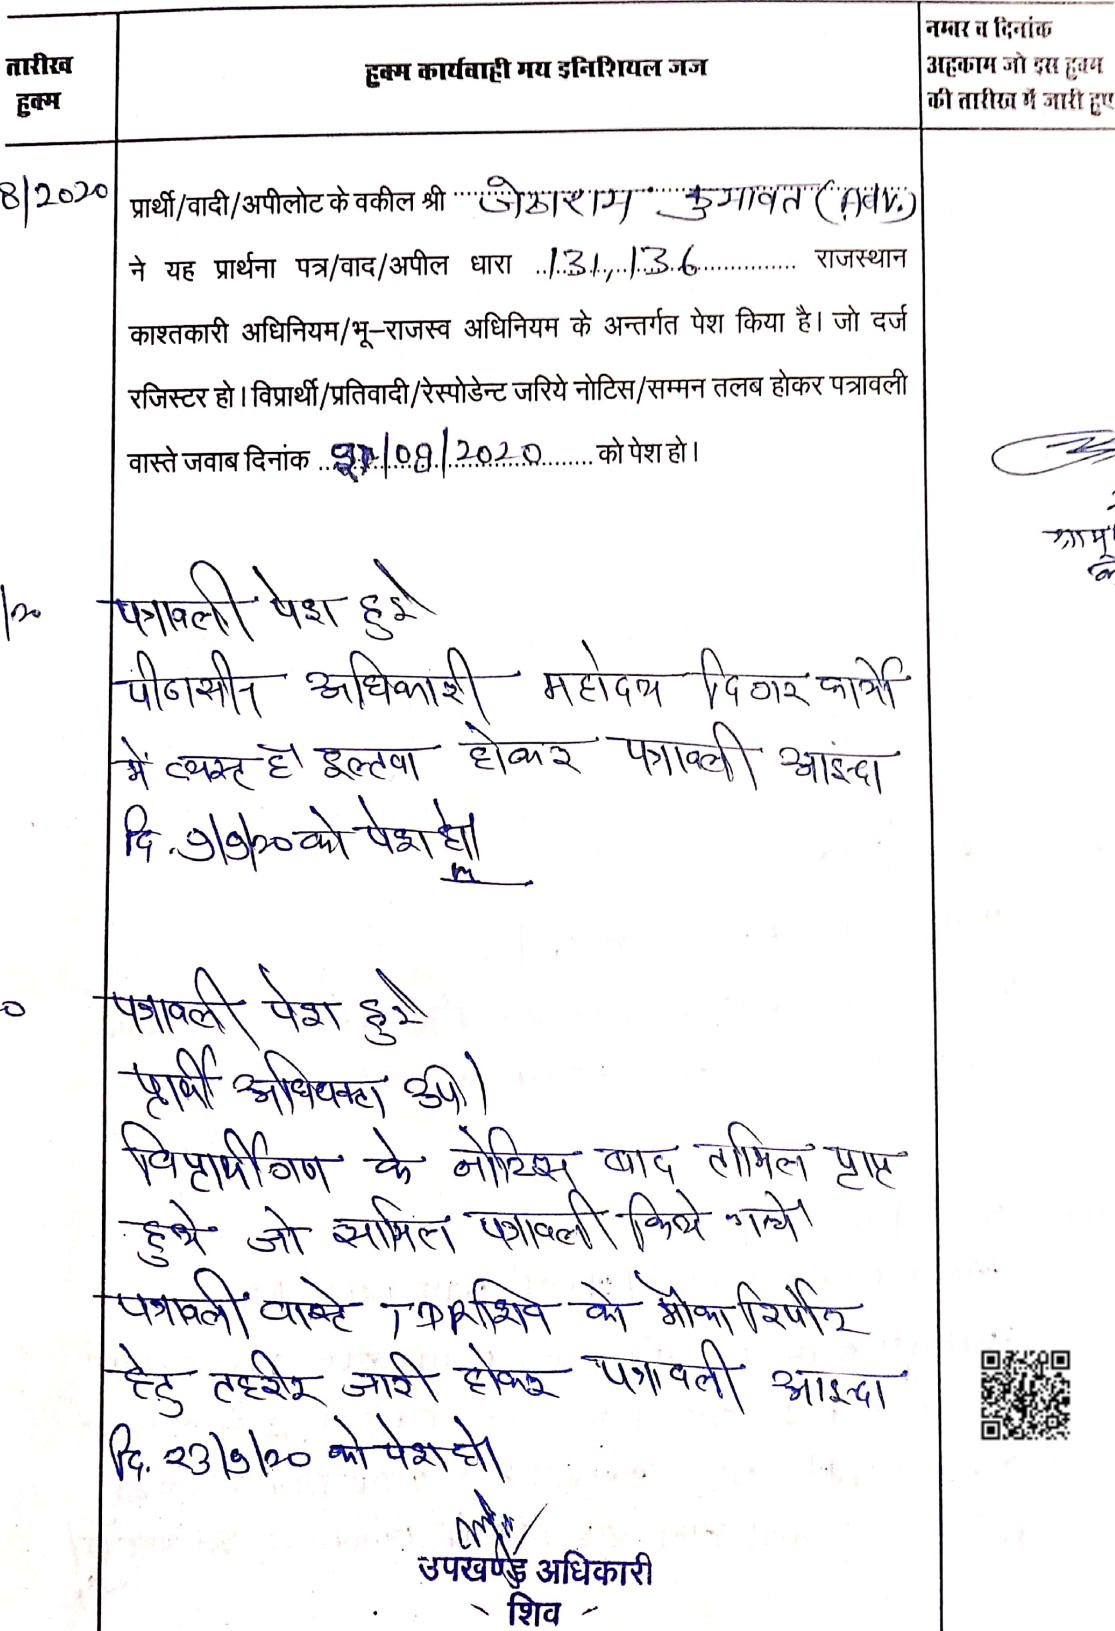 तारीख
हुक्म
हुक्म कार्यवाही मय इनिशियल जज
नम्बर व दिनांक
अहकाम जो इस हुक्म
की तारीख में जारी हुए
8/2020
प्रार्थी/वादी/अपीलोट के वकील श्री जेठाराम कुमावत (Adv.)
ने यह प्रार्थना पत्र/वाद/अपील धारा 131, 136 राजस्थान
काश्तकारी अधिनियम/भू-राजस्व अधिनियम के अन्तर्गत पेश किया है। जो दर्ज
रजिस्टर हो। विप्रार्थी/प्रतिवादी/रेस्पोडेन्ट जरिये नोटिस/सम्मन तलब होकर पत्रावली
वास्ते जवाब दिनांक /08/2020 को पेश हो।
/20
पत्रावली पेश हुई
पीठासीन अधिकारी महोदय दिगर कार्यो
में व्यस्त है इल्तवा होकर पत्रावली आइन्दा
दि. 9/9/20 को पेश हो।
0
पत्रावली पेश हुई
प्रार्थी अधिवक्ता उप।
विप्रार्थीगण के नोटिस बाद तामिल प्राप्त
हुये जो सामिल पत्रावली किये गये।
पत्रावली वास्ते TDR शिव को मौका रिर्पोट
हेतु तहरीर जारी होकर पत्रावली आइन्दा
दि. 23/9/20 को पेश हो।
उपखण्ड अधिकारी
शिव